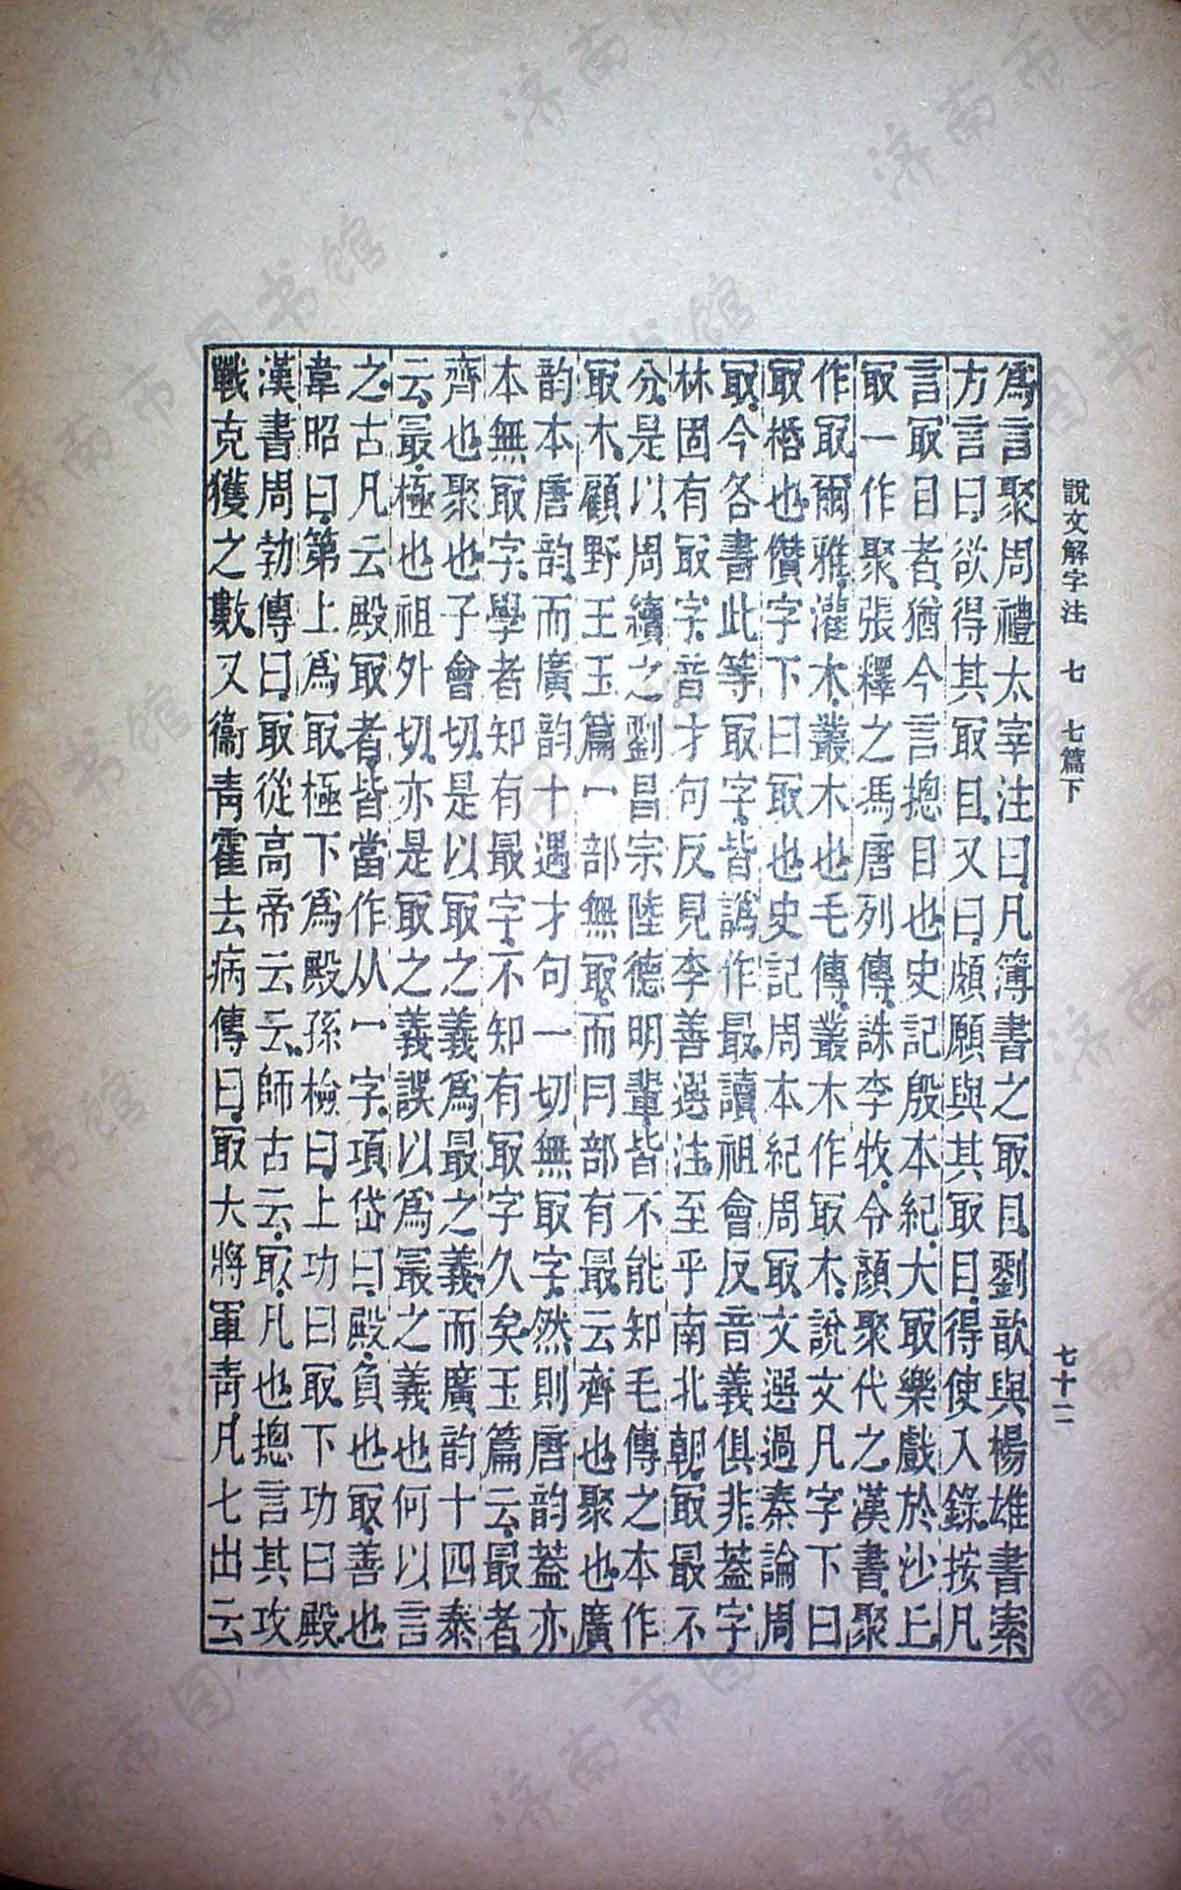 說文解字注 七 七篇下 七十二
爲言聚周禮太宰注曰凡簿書之冣目劉歆與楊雄書索
方言曰欲得其冣目又曰頗願與其冣目得使入錄按凡
言冣目者猶今言摠目也史記殷本紀大冣樂戲於沙丘
冣一作聚張釋之馮唐列傳誅李牧令顏聚代之漢書聚
作冣爾雅灌木叢木也毛傳叢木作冣木說文凡字下曰
冣桰也儧字下曰冣也史記周本紀周冣文選過秦論周
冣今各書此等冣字皆譌作最讀祖會反音義俱非葢字
林固有冣字音才句反見李善選注至乎南北朝冣最不
分是以周續之劉昌宗陸德明輩皆不能知毛傳之本作
冣木顧野王玉篇冖部無冣而曰部有最云齊也聚也廣
韵本唐韵而廣韵十遇才句一切無冣字然則唐韵葢亦
本無冣字學者知有最字不知有冣字久矣玉篇云最者
齊也聚也子會切是以冣之義爲最之義而廣韵十四泰
云最極也祖外切亦是冣之義誤以爲最之義也何以言
之古凡云殿冣者皆當作从冖字項岱曰殿負也冣善也
韋昭曰第上爲冣極下爲殿孫檢曰上功曰冣下功曰殿
漢書周勃傳曰冣從高帝云云師古云冣凡也摠言其攻
戰克獲之數又衞靑霍去病傳曰冣大將軍靑凡七出云
济南市图书馆